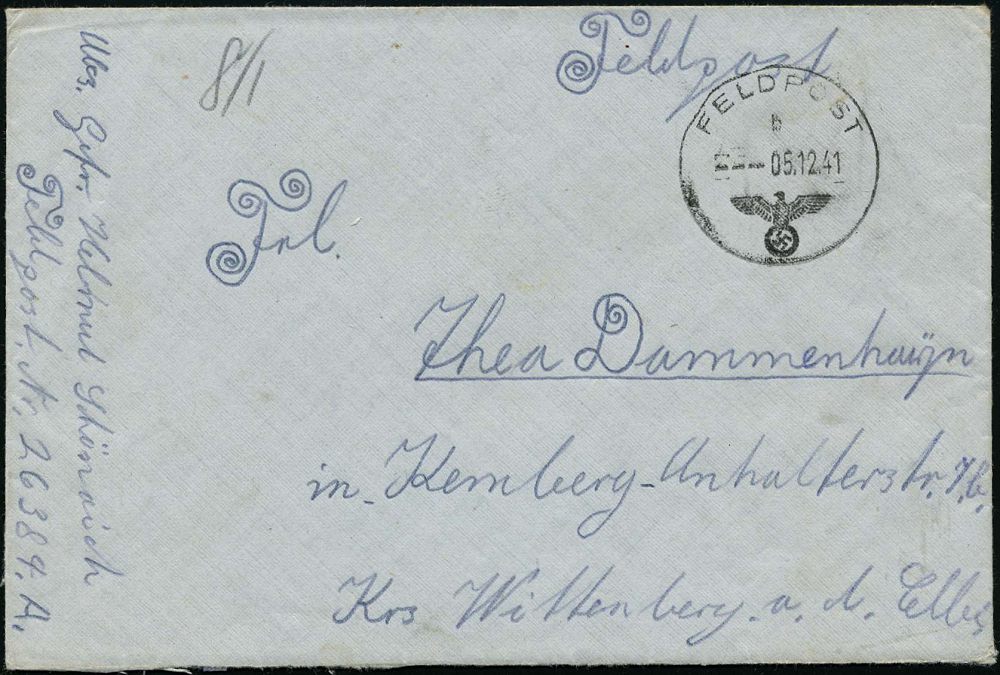 8/1
Feldpost
FELDPOST
b
05.12.41
Frl.
Thea Dammenhaÿn
in Kemberg-Anhalterstr. 7b.
Krs Wittenberg. a. d. Elbe
Gefr. Helmut Schönaich
Feldpost. Nr. 26384. A.